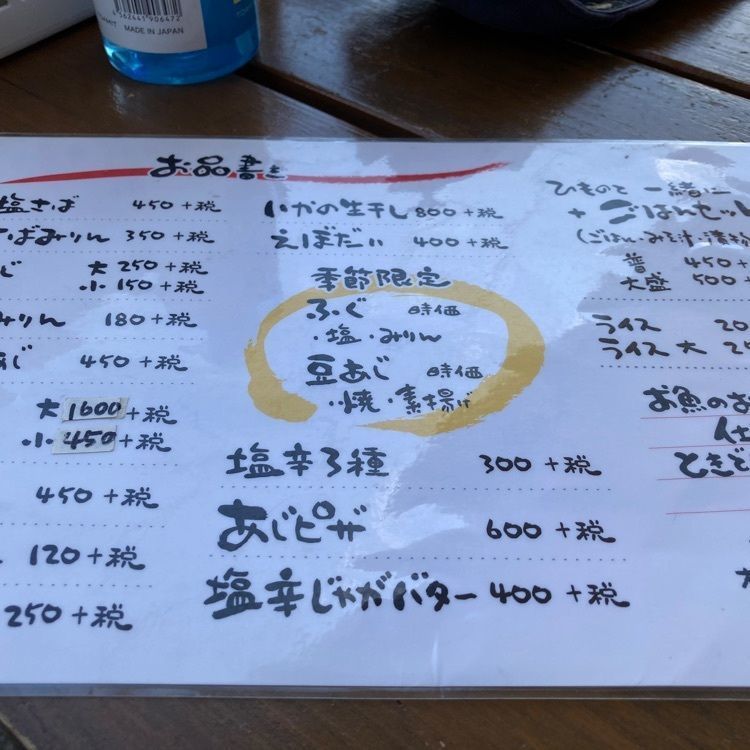 4562441906472
MADE IN JAPAN
お品書き
塩さば 450+税
さばみりん 350+税
じ 大 250+税
小 150+税
みりん 180+税
あじ 450+税
大 1600+税
小 450+税
450+税
120+税
250+税
いかの生干し 800+税
えぼだい 400+税
季節限定
ふぐ 時価
・塩・みりん
豆あじ 時価
・焼・素揚げ
塩辛3種 300+税
あじピザ 600+税
塩辛じゃがバター 400+税
ひものと一緒に
+ごはんセット
(ごはん・みそ汁・漬
普 450+
大盛 500+
ライス 20
ライス大 25
お魚のお
仕
ときど